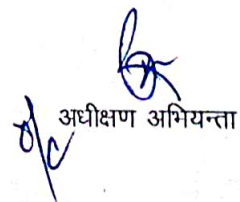 अधीक्षण अभियन्ता
o/c